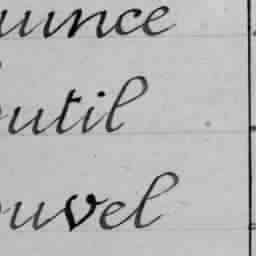 uince
outil
ouvel